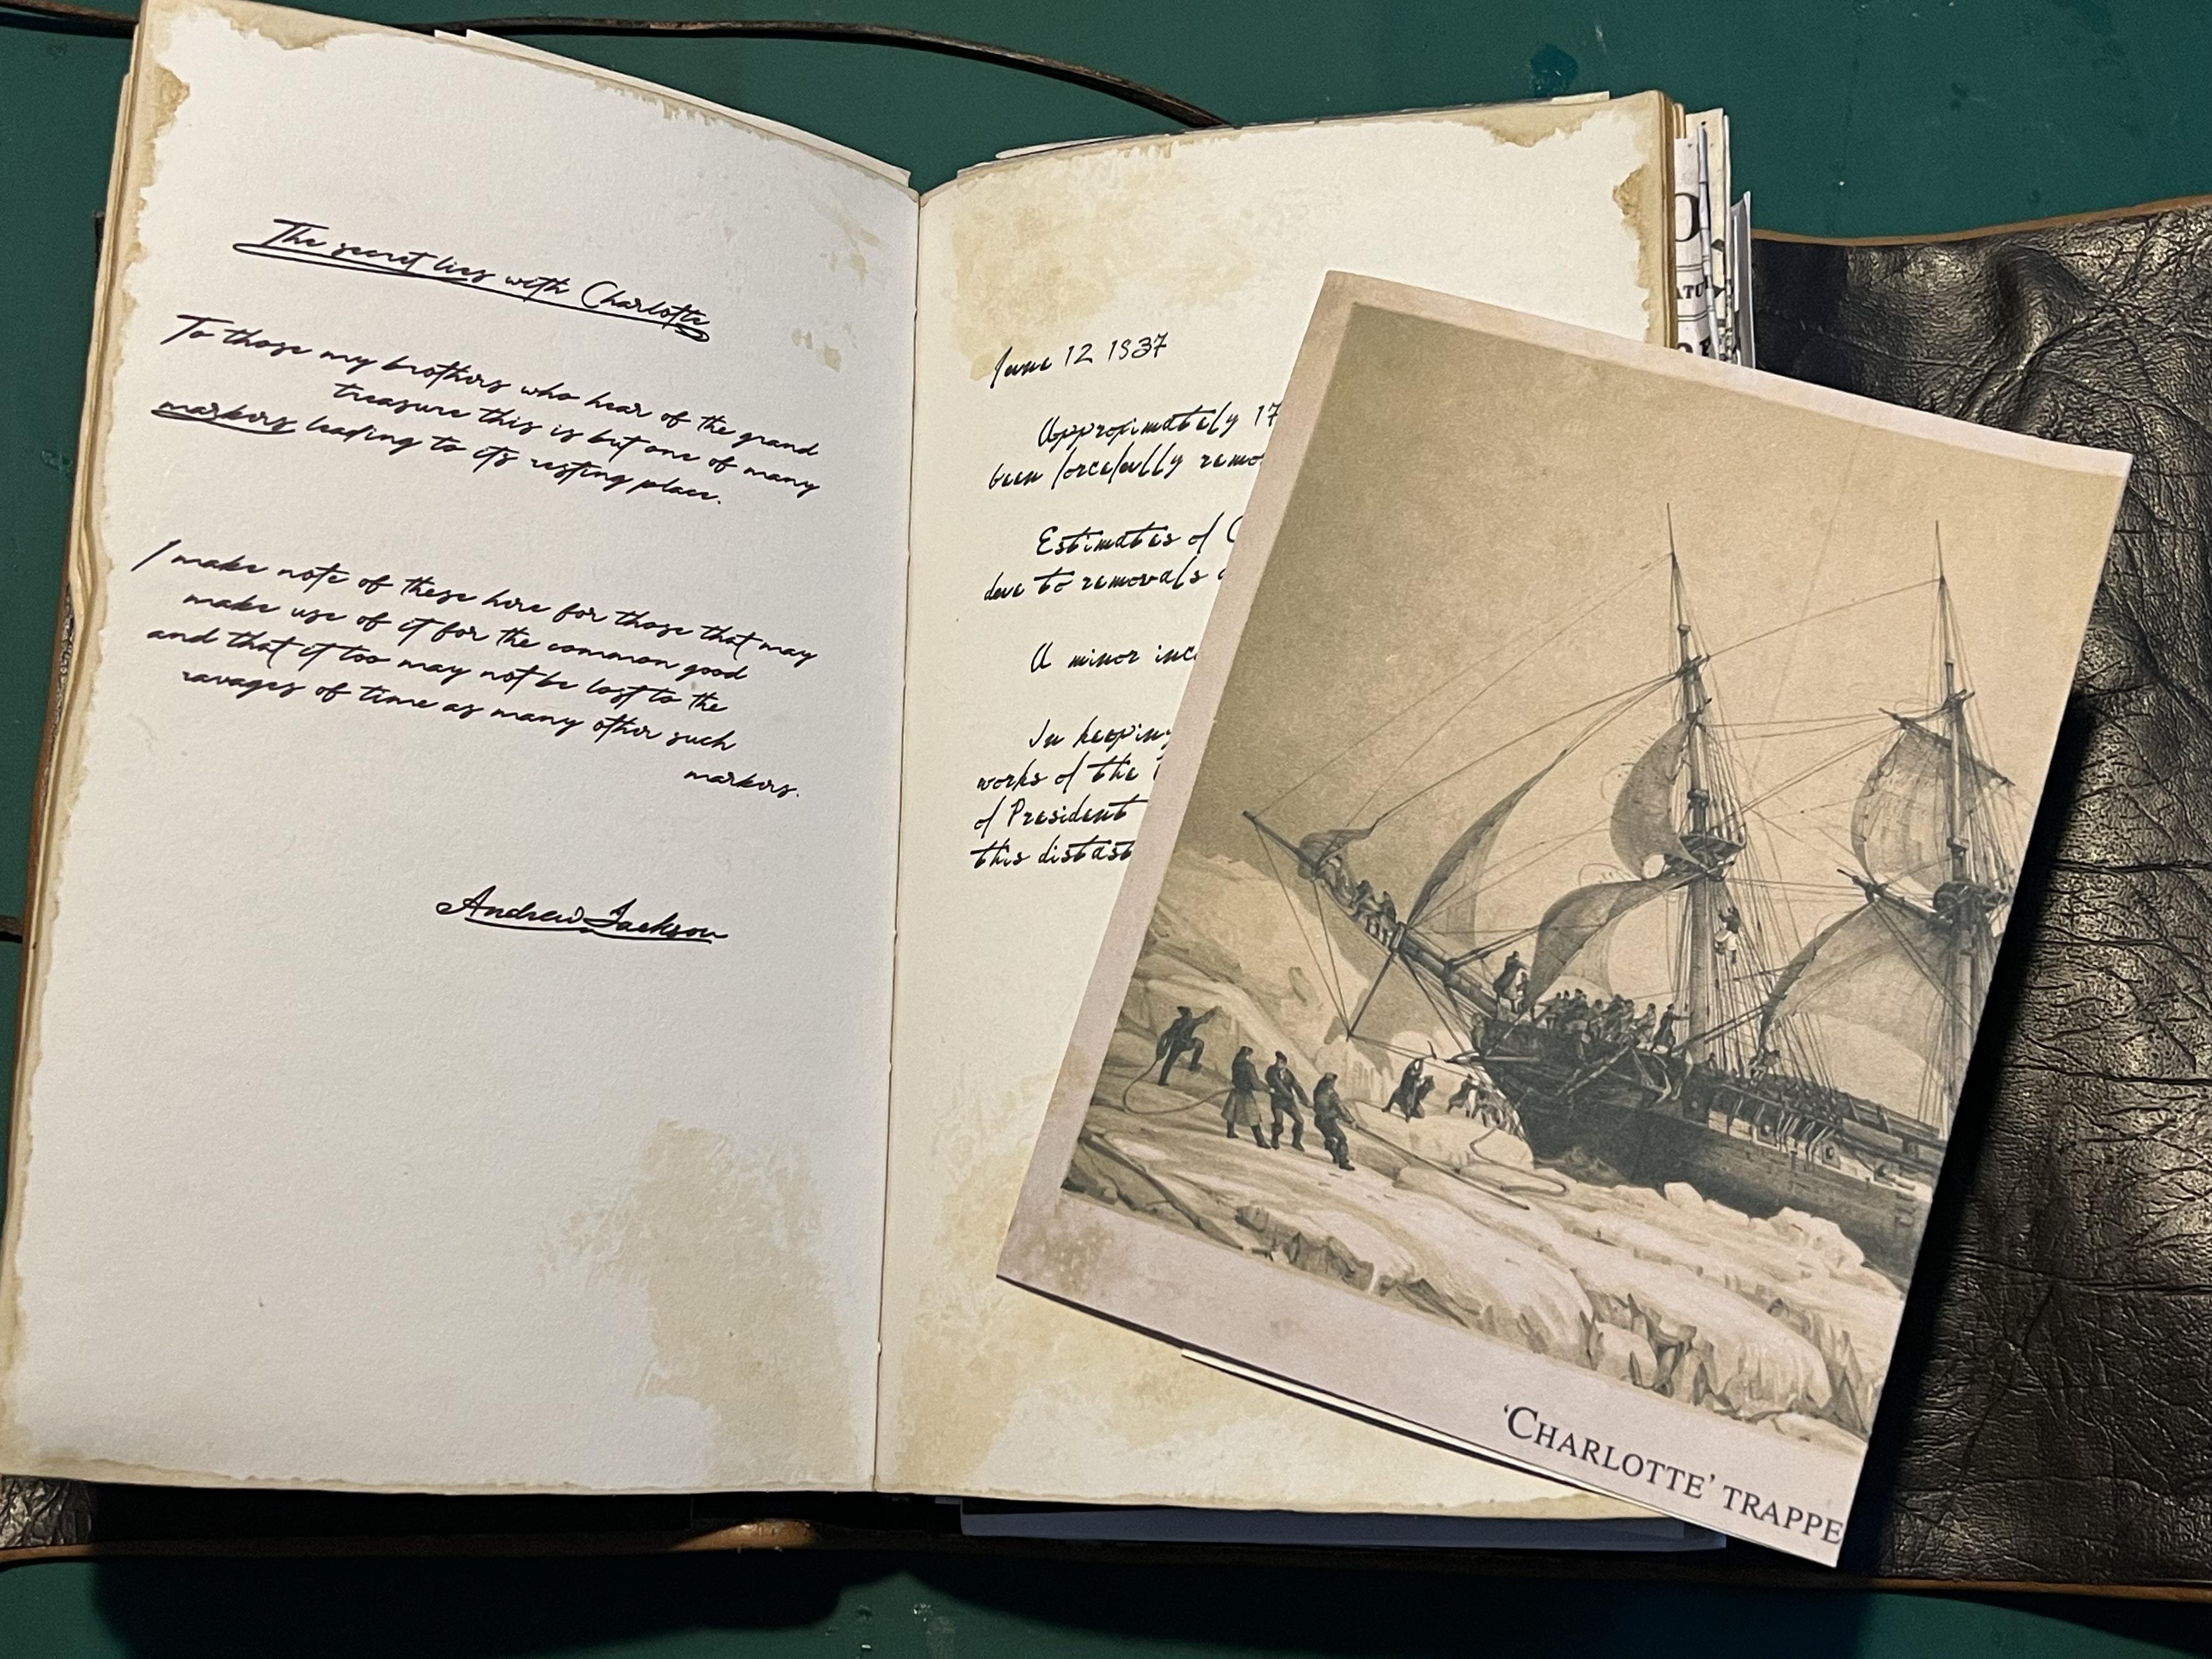 The secret lies with Charlotte
To those my brothers who hear of the grand
treasure this is but one of many
markers leading to its resting place.
I make note of these here for those that may
make use of it for the common good
and that it too may not be lost to the
ravages of time as many other such
markers.
Andrew Jackson
June 12 1837
Approximately 17
been forcefully remo
Estimates of C
due to removals
A minor inc
In keeping
works of the
of President
this distast
'CHARLOTTE' TRAPPE